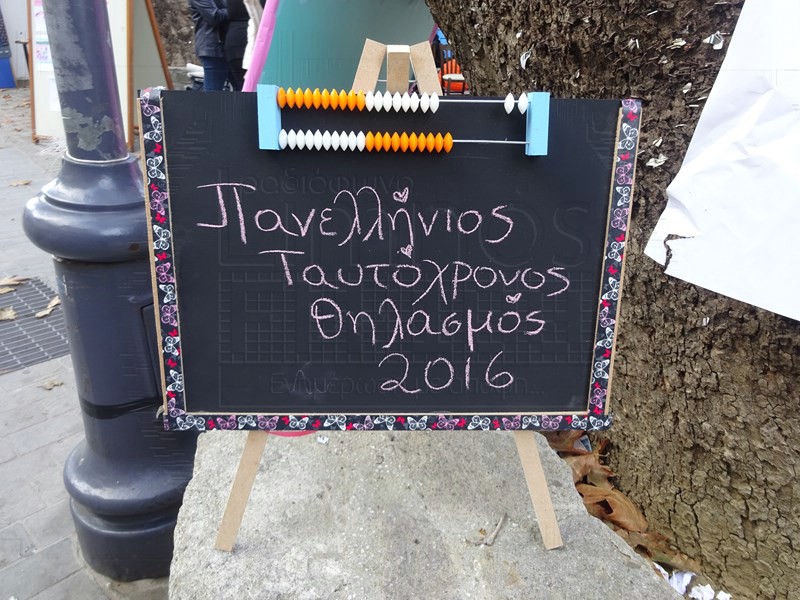 Πανελλήνιος
Ταυτόχρονος
Θηλασμός
2016